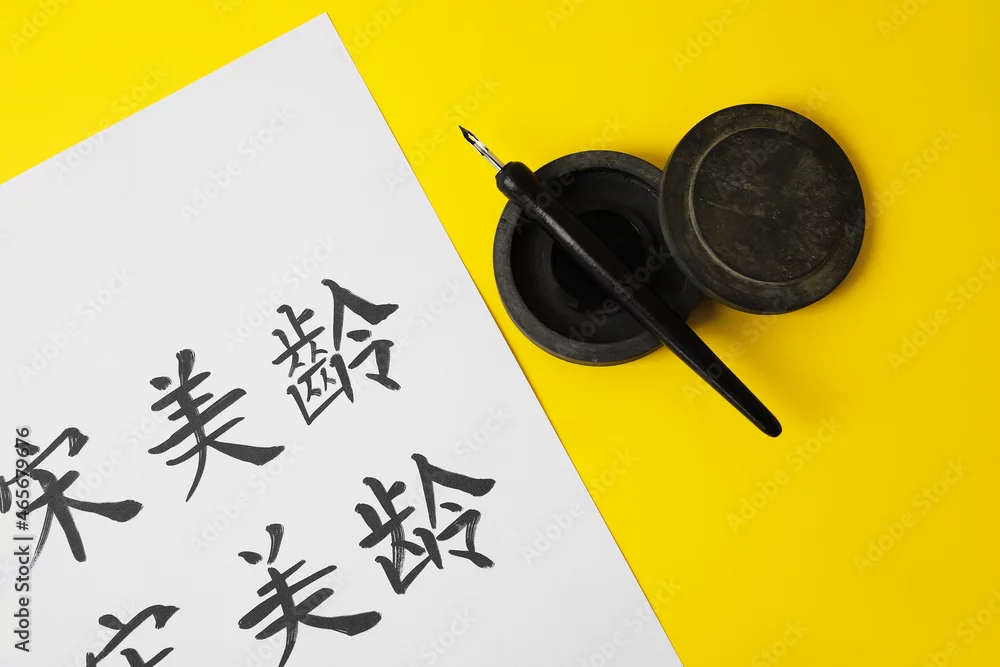 宋美齡
宋美龄
Adobe Stock | #465679676